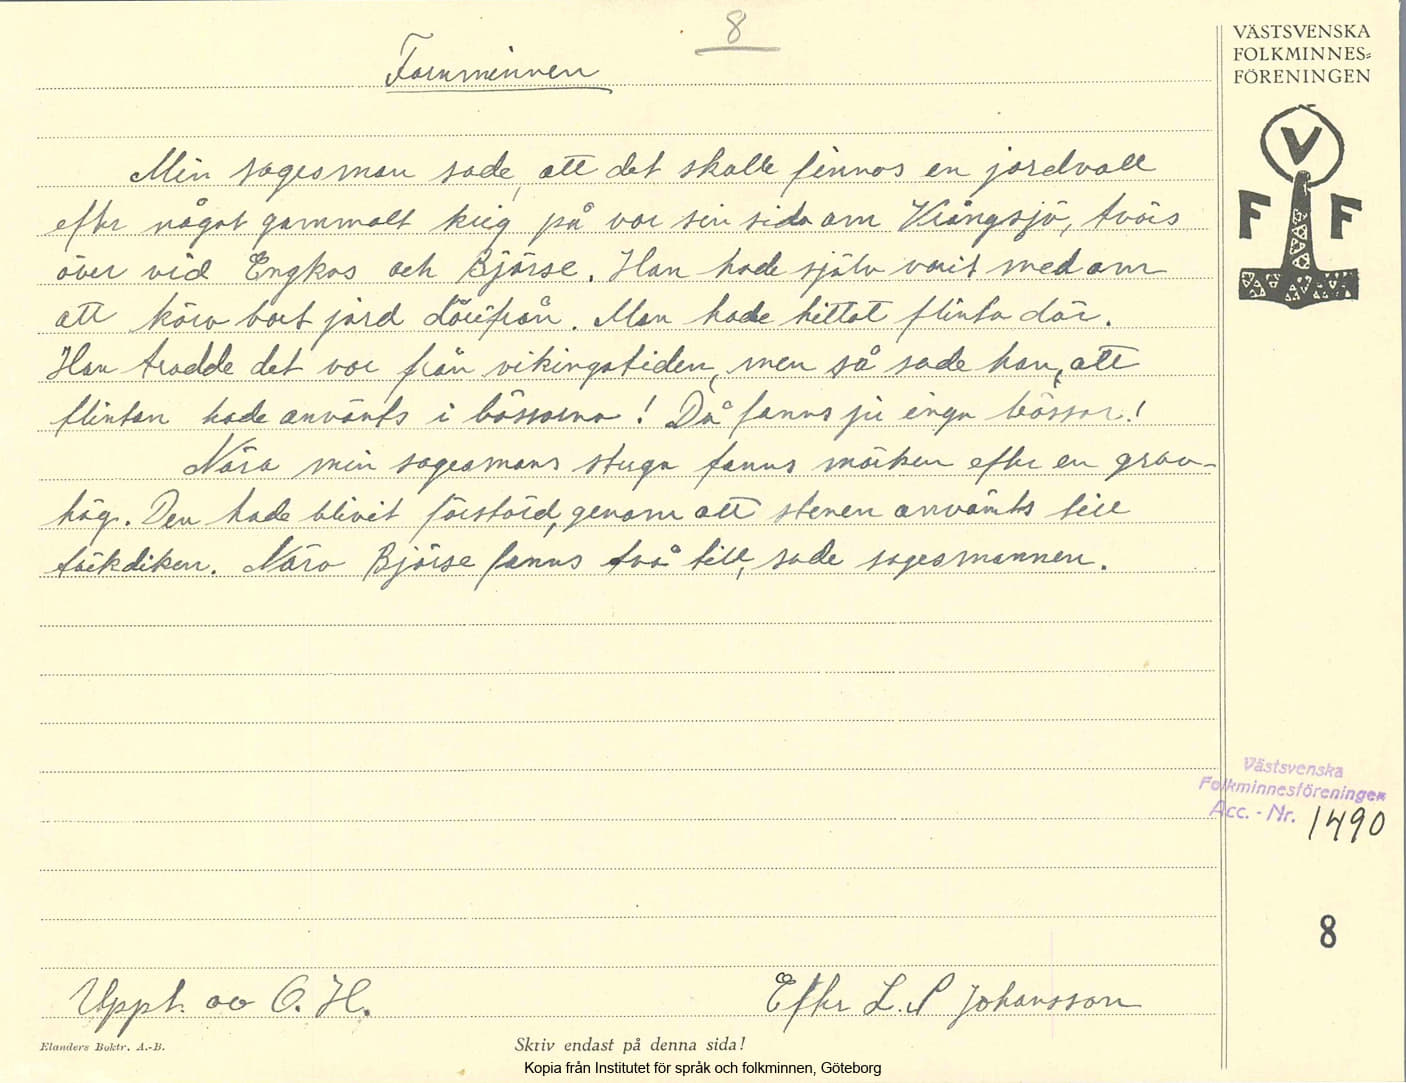 8
VÄSTSVENSKA
FOLKMINNES=
FÖRENINGEN
V
F F
Fornminnen
Min sagesman sade, att det skulle finnas en jordvall
efter något gammalt krig på var sin sida om Vrångsjö, tvärs
över vid Engkas och Björse. Han hade själv varit med om
att köra bort jord därifrån. Man hade hittat flinta där.
Han trodde det var från vikingatiden, men så sade han, att
flintan hade använts i bössorna! Då fanns ju inga bössor!
Nära min sagesmans stuga fanns märken efter en grav-
hög. Den hade blivit förstörd, genom att stenen använts till
täckdiken. Nära Björse fanns två till, sade sagesmannen.
Västsvenska
Folkminnesföreningen
Acc. - Nr. 1490
8
Uppt. av O. H.
Efter L. P Johansson
Elanders Boktr. A.-B.
Skriv endast på denna sida!
Kopia från Institutet för språk och folkminnen, Göteborg